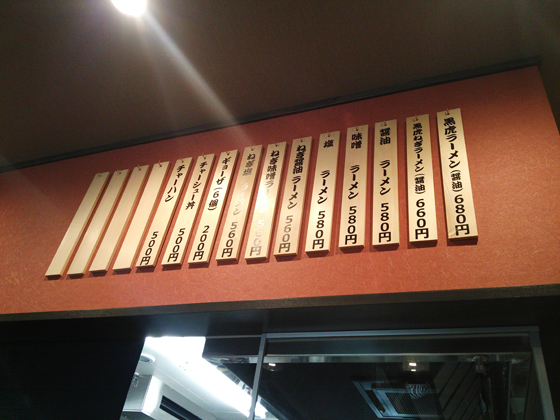 黒虎ラーメン(醤油)680円
黒虎ねぎラーメン(醤油)660円
醤油ラーメン580円
味噌ラーメン580円
塩ラーメン580円
ねぎ醤油ラーメン560円
ねぎ味噌ラーメン560円
ねぎ塩ラーメン560円
ギョーザ(6個)200円
チャーシュー丼500円
チャーハン500円